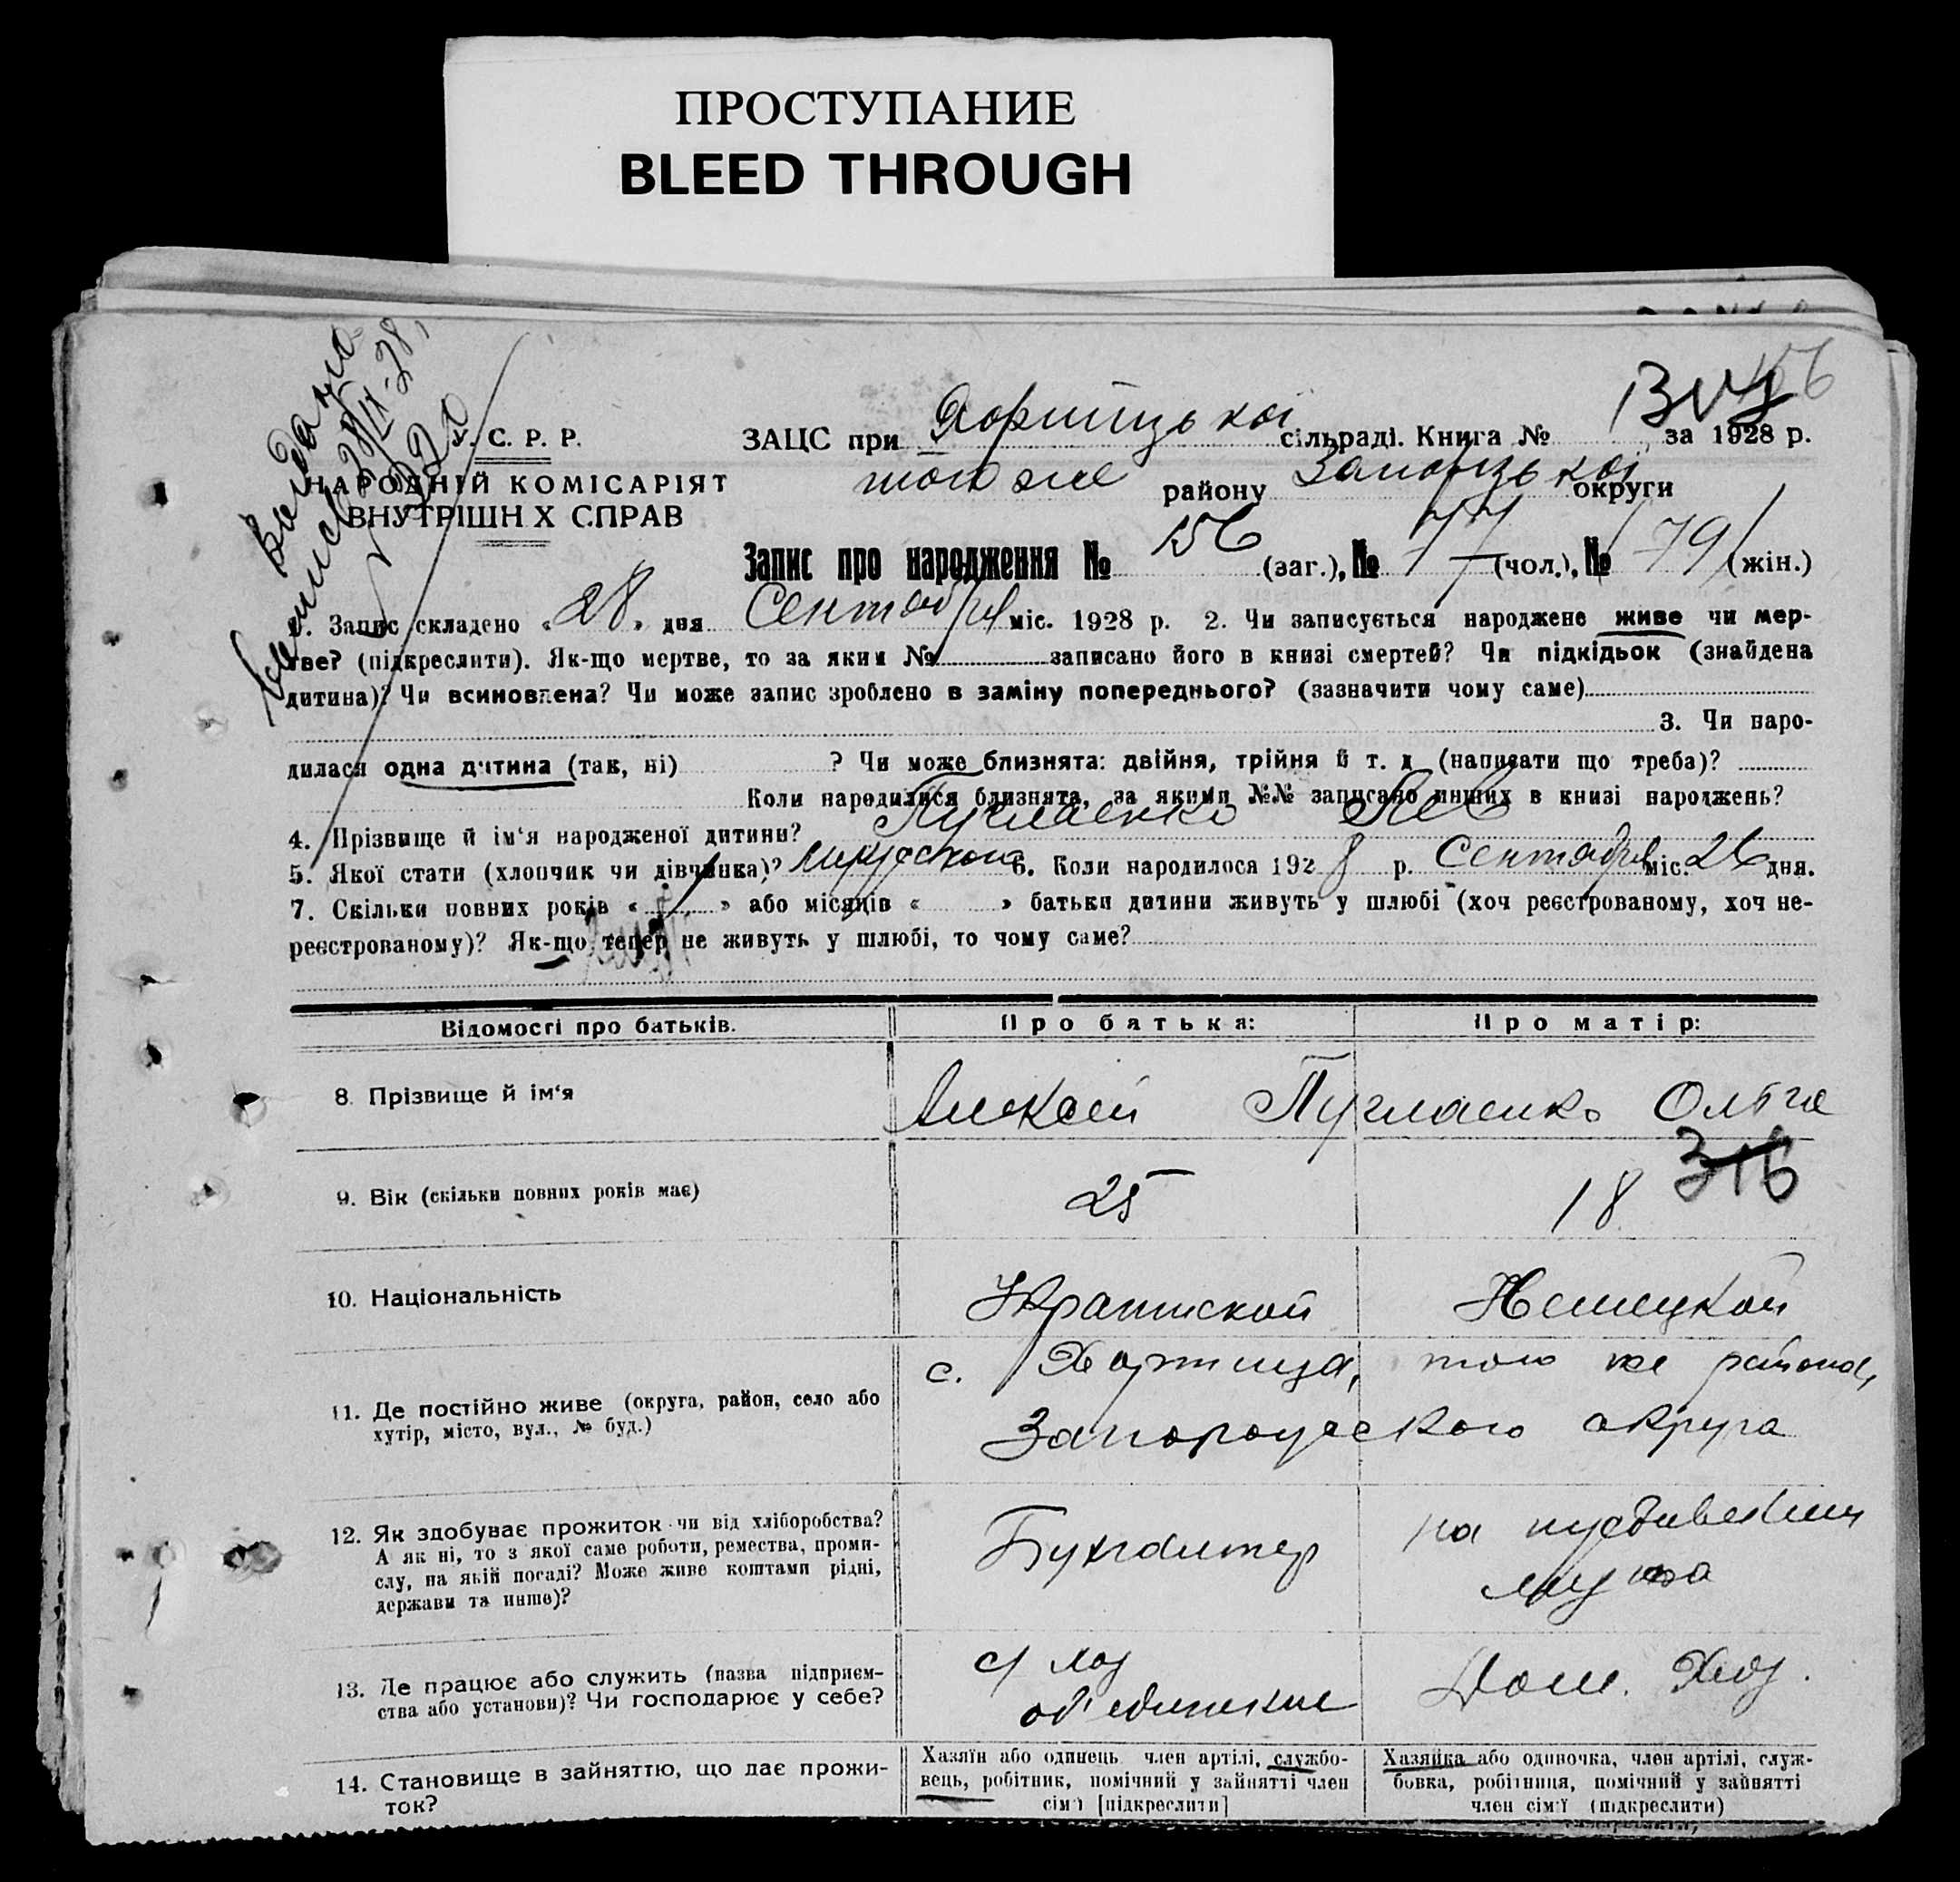 ПРОСТУПАНИЕ
BLEED THROUGH
156
Выдана
выпись 28/IX-28
С. Р. Р.
НАРОДНІЙ КОМІСАРІЯТ
ВНУТРІШН Х СПРАВ
ЗАЦС при Хортицької сільраді. Книга № за 1928 р.
того же району Запорізької округи
Запис про народження № 156 (заг.), № 77 (чол.), № 79 (жін.)
1. Запис складено «28» дня Сентября міс. 1928 р. 2. Чи записується народжене живе чи мер-
тве? (підкреслити). Як-що мертве, то за яким № записано його в книзі смертей? Чи підкідьок (знайдена
дитина)? Чи всиновлена? Чи може запис зроблено в заміну попереднього? (зазначити чому саме)
3. Чи наро-
дилася одна дитина (так, ні) ? Чи може близнята: двійня, трійня й т. д (написати що треба)?
Коли народилися близнята, за якими №№ записано инших в книзі народжень?
4. Прізвище й ім'я народженої дитини? Лев
5. Якої стати (хлопчик чи дівчинка)? мужской 6. Коли народилося 1928 р. Сентября міс. 26 дня.
7. Скільки повних років « 1 » або місяців « » батьки дитини живуть у шлюбі (хоч реєстрованому, хоч не-
реєстрованому)? Як-що тепер не живуть у шлюбі, то чому саме?
Відомості про батьків. Про батька: Про матір:
8. Прізвище й ім'я Алексей Ольга
316
9. Вік (скільки повних років має) 25 18
10. Національність Украинской Немецкой
11. Де постійно живе (округа, район, село або хутір, місто, вул., № буд.) с. Хортица, того же района,
Запорожского округа
12. Як здобуває прожиток чи від хліборобства? А як ні, то з якої саме роботи, ремества, промислу, на якій посаді? Може живе коштами рідні, держави та инше)? Бухгалтер на иждивении
мужа
13. Де працює або служить (назва підприєм-
ства або установи)? Чи господарює у себе? с/хоз объединение Дом. Хоз.
14. Становище в зайняттю, що дає прожи-
ток?
Хазяїн або одинець член артілі, службо-
вець, робітник, помічний у зайнятті член
сім'ї [підкреслити]
Хазяйка або одиночка, член артілі, служ-
бовка, робітниця, помічний у зайнятті
член сім'ї (підкреслити)